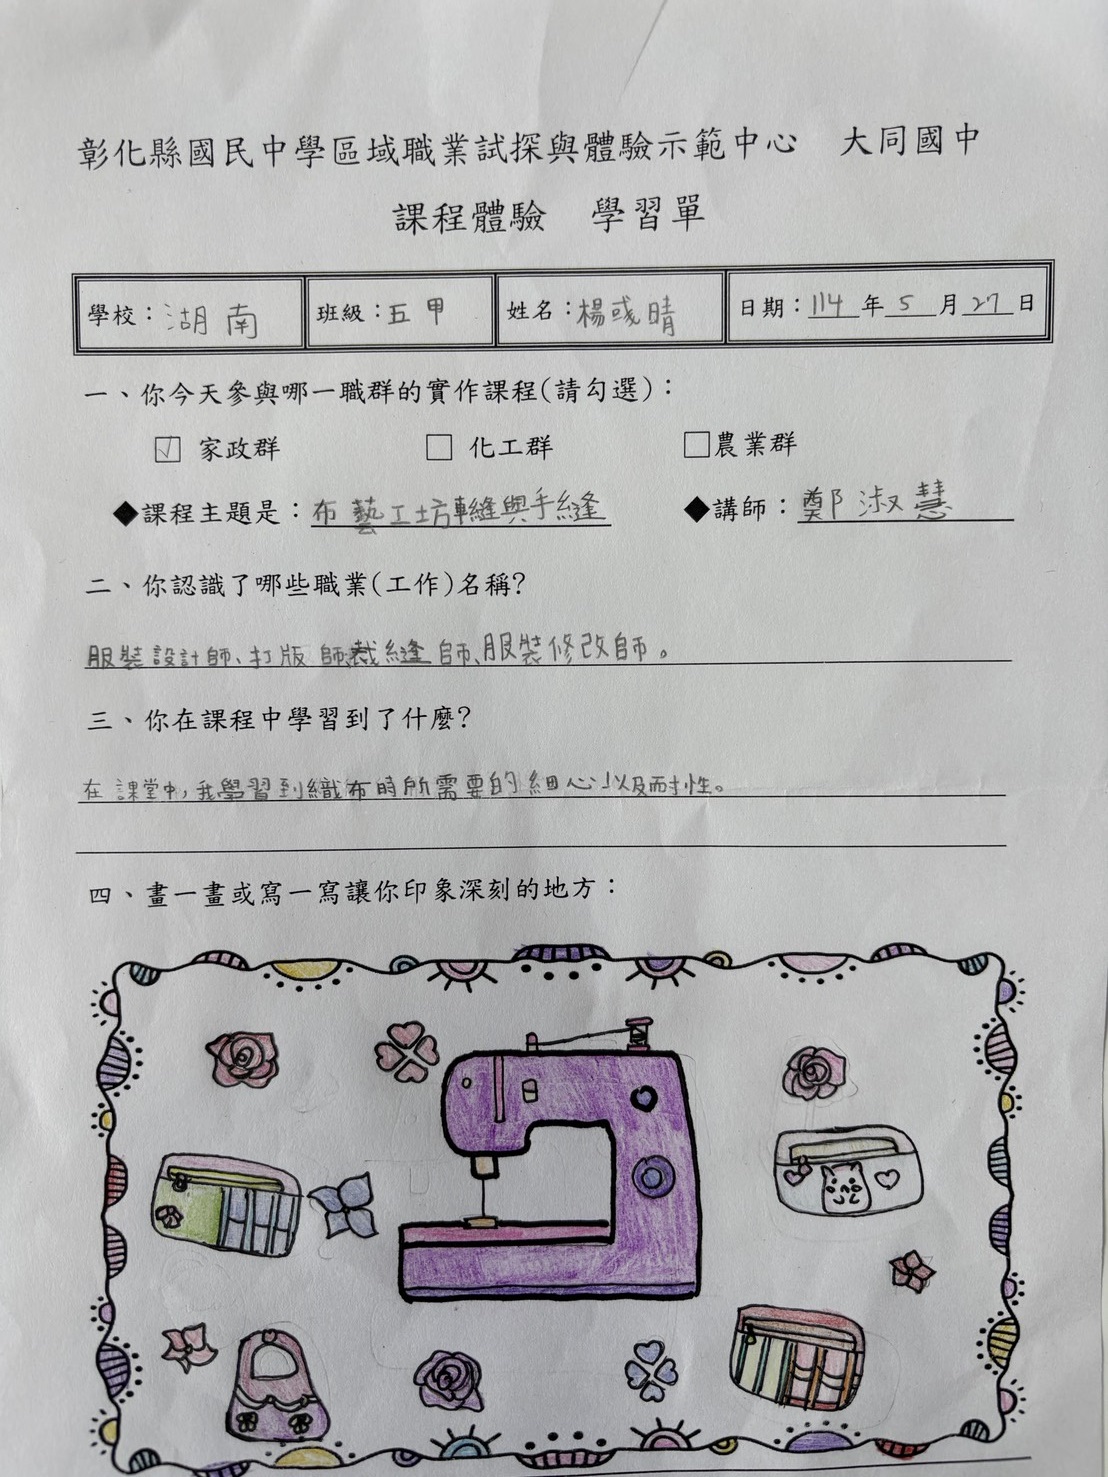 彰化縣國民中學區域職業試探與體驗示範中心　大同國中
課程體驗　學習單
學校：湖南 班級：五甲 姓名：楊彧晴 日期：114年5月27日
一、你今天參與哪一職群的實作課程(請勾選)：
☑ 家政群 □ 化工群 □農業群
◆課程主題是：布藝工坊車縫與手縫 ◆講師：鄭淑慧
二、你認識了哪些職業(工作)名稱?
服裝設計師、打版師、裁縫師、服裝修改師。
三、你在課程中學習到了什麼?
在課堂中，我學習到織布時所需要的細心以及耐性。
四、畫一畫或寫一寫讓你印象深刻的地方：